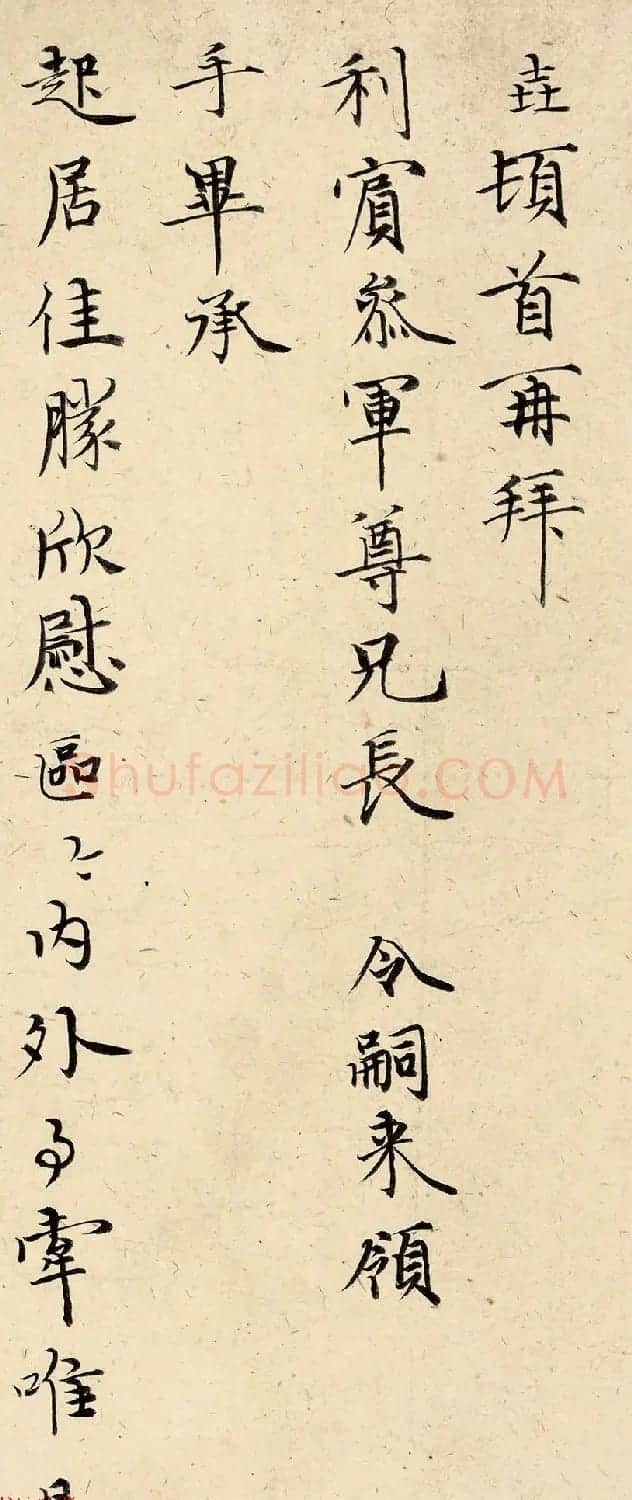 垚頓首再拜
利賓叅軍尊兄長 令嗣来領
手畢承
起居佳勝欣慰區々内外事牽唯
Shufaziliao.COM